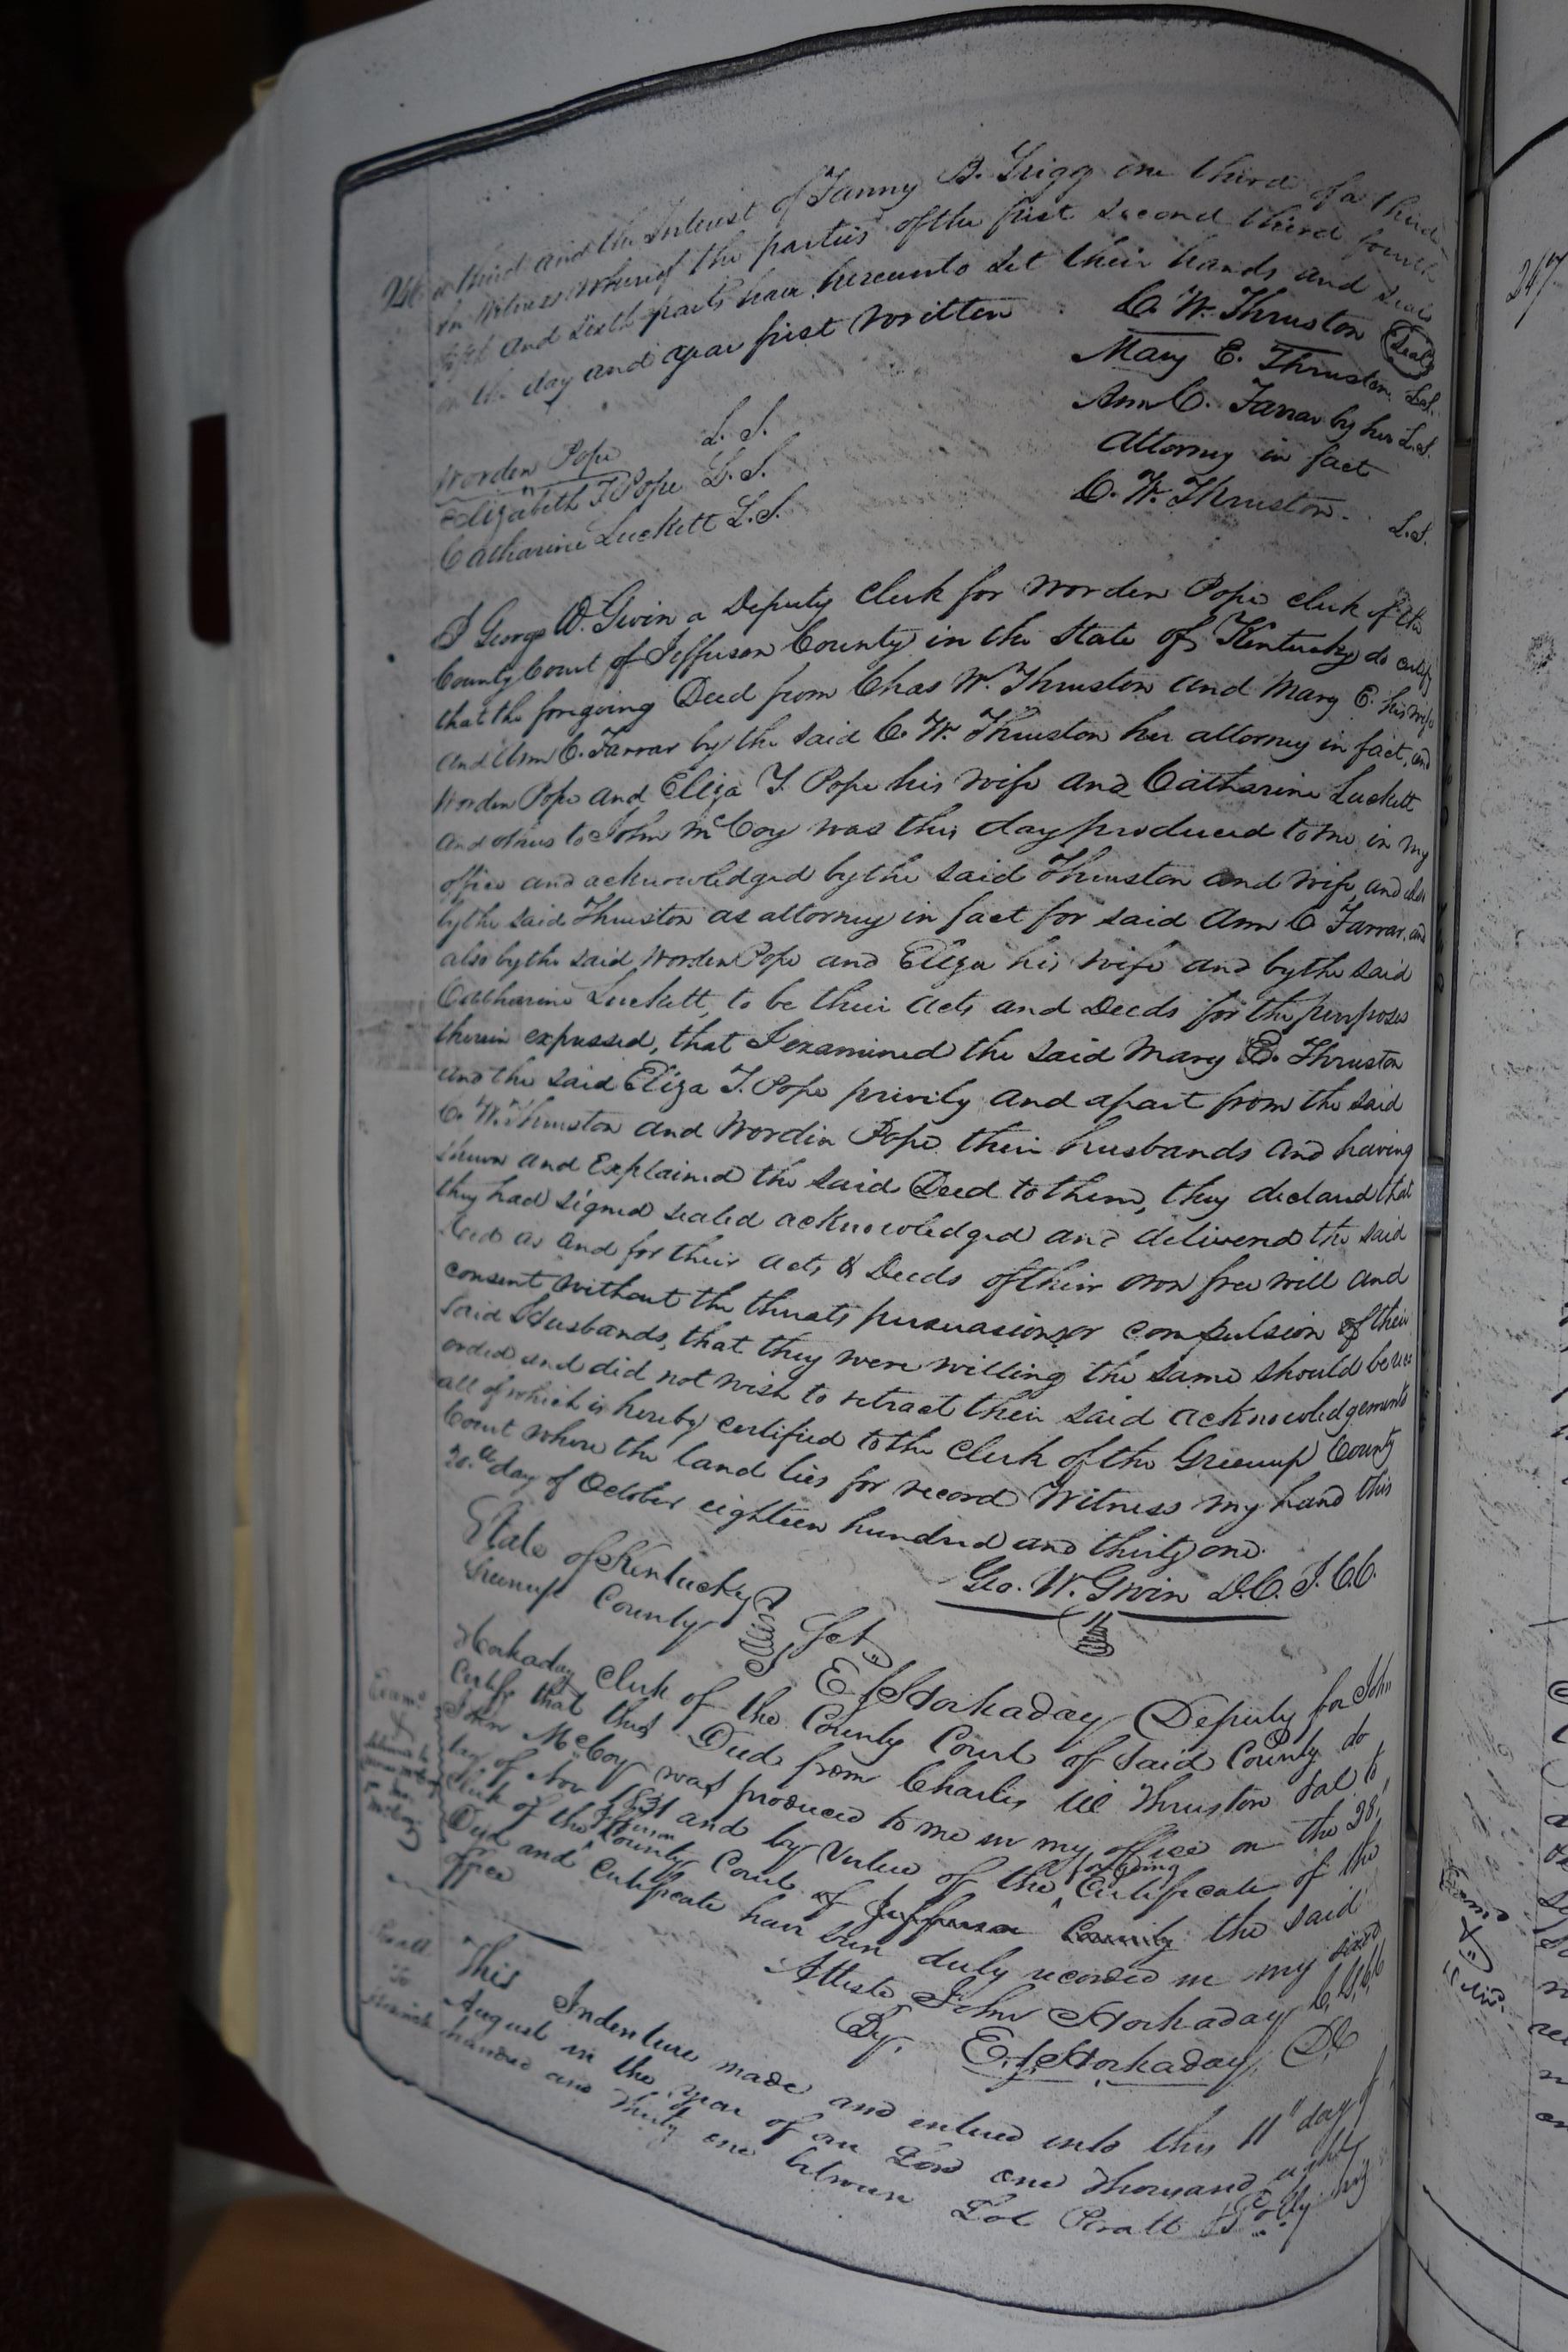 246 a third and the Interest of Fanny B. Grigg one third of a third
In Witness whereof the parties of the first second third fourth
fifth and sixth parts have hereunto set their hands and seals
on the day and year first written
C. W. Thruston (Seal)
Mary E. Thruston L.S.
Ann C. Farrar by her L.S.
attorney in fact
C. W. Thruston. L.S.
Worden Pope L. S.
Elizabeth T Pope L. S.
Catharine Luckett L.S.
I George W. Gwin a Deputy Clerk for Worden Pope clerk of the
County Court of Jefferson County in the State of Kentucky do certify
that the foregoing Deed from Chas W. Thruston and Mary E. his wife
and Ann C. Farrar by the said C. W. Thruston her attorney in fact, and
Worden Pope and Eliza T. Pope his wife and Catharine Luckett
and others to John McCoy was this day produced to me in my
office and acknowledged by the said Thruston and wife, and also
by the said Thruston as attorney in fact for said Ann C Farrar, and
also by the said Worden Pope and Eliza his wife and by the said
Catharine Luckett, to be their acts and Deeds for the purposes
therein expressed, that I examined the said Mary E. Thruston
and the said Eliza T. Pope privily and apart from the said
C. W. Thruston and Worden Pope their husbands and having
shewn and Explained the said Deed to them, they declared that
they had signed sealed acknowledged and delivered the said
Deed as and for their acts & Deeds of their own free will and
consent without the threats persuasion or compulsion of their
said Husbands, that they were willing the same should be rec
orded and did not wish to retract their said acknowledgements
all of which is hereby certified to the Clerk of the Greenup County
Court where the land lies for record Witness my hand this
20th day of October eighteen hundred and thirty one.
Geo. W. Gwin D.C. J.C.C.
State of Kentucky
Greenup County Sct.
E. J. Hockaday Deputy for John
Hockaday Clerk of the County Court of Said County do
Certify that this Deed from Charles W Thruston &al to
John McCoy was produced to me in my office on the 28,
day of Nov 1831 and by Virtue of the foregoing Certificate of the
Clerk of the Jefferson County Court of Jefferson County the said
Deed and Certificate have been duly recorded in my said
office
Atteste John Hockaday C,G,C,C
By, E. J. Hockaday, DC
Exam.d
This Indenture made and entered into this 11" day of
August in the year of our Lord one thousand eight
hundred and thirty one between Lot Peratt & Polly his
247